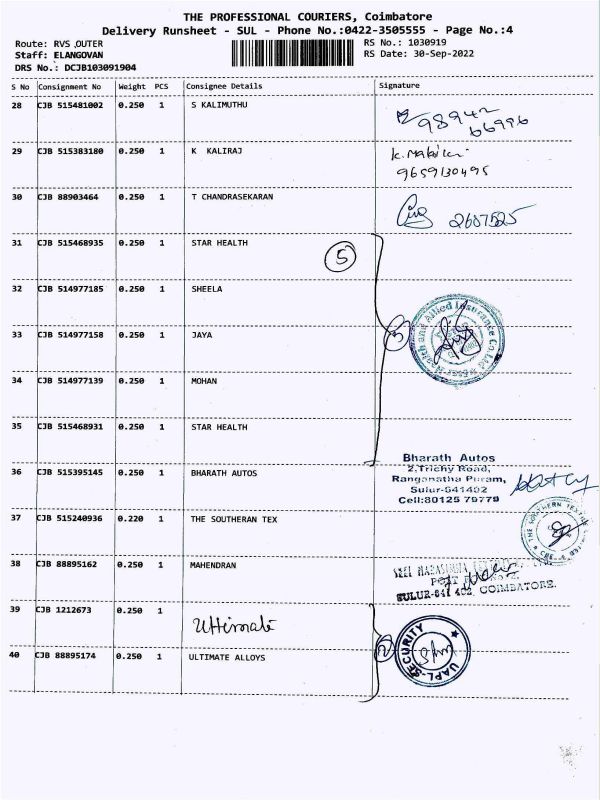 THE PROFESSIONAL COURIERS, Coimbatore
Delivery Runsheet - SUL - Phone No.:0422-3505555 - Page No.:4
Route: RVS OUTER
RS No.: 1030919
Staff: ELANGOVAN
RS Date: 30-Sep-2022
DRS No.: DCJB103091904
S No Consignment No Weight PCS Consignee Details Signature
28 CJB 515481002 0.250 1 S KALIMUTHU
98942
66996
29 CJB 515383180 0.250 1 K KALIRAJ
9659130495
30 CJB 88903464 0.250 1 T CHANDRASEKARAN 2607525
31 CJB 515468935 0.250 1 STAR HEALTH
5
32 CJB 514977185 0.250 1 SHEELA
33 CJB 514977158 0.250 1 JAYA
Health and Allied Insurance Co.Ltd
34 CJB 514977139 0.250 1 MOHAN
35 CJB 515468931 0.250 1 STAR HEALTH
Bharath Autos
2,Trichy Road,
Ranganatha Puram,
Sulur-641402
Cell:80125 79779
36 CJB 515395145 0.250 1 BHARATH AUTOS
37 CJB 515240936 0.220 1 THE SOUTHERAN TEX
38 CJB 88895162 0.250 1 MAHENDRAN
SULUR-641 402, COIMBATORE.
39 CJB 1212673 0.250 1 Ultimate
2
UAPL-SECURITY
40 CJB 88895174 0.250 1 ULTIMATE ALLOYS